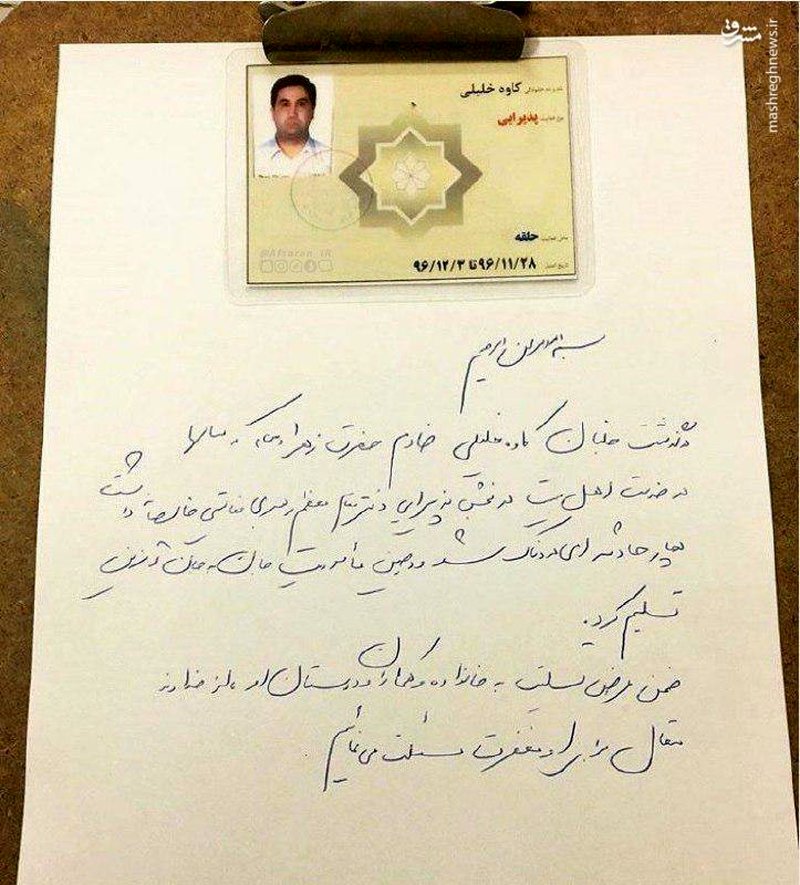 مشرق
mashreghnews.ir
نام و نام خانوادگی کاوه خلیلی
نوع فعالیت پذیرایی
محل فعالیت حلقه
تاریخ اعتبار ۹۶/۱۱/۲۸ تا ۹۶/۱۲/۳
@Afsaran_iR
بسم الله الرحمن الرحیم
درگذشت جناب کاوه خلیلی خادم حضرت زهرا که سالها
در خدمت اهل بیت در بخش پذیرایی دفتر مقام معظم رهبری خالصانه داشت
دچار حادثه ای دردناک شد و در حین مأموریت جان به جان آفرین
تسلیم کرد.
ضمن عرض تسلیت به خانواده و همکاران و دوستان او از خداوند
متعال برای او مغفرت مسئلت می نمائیم